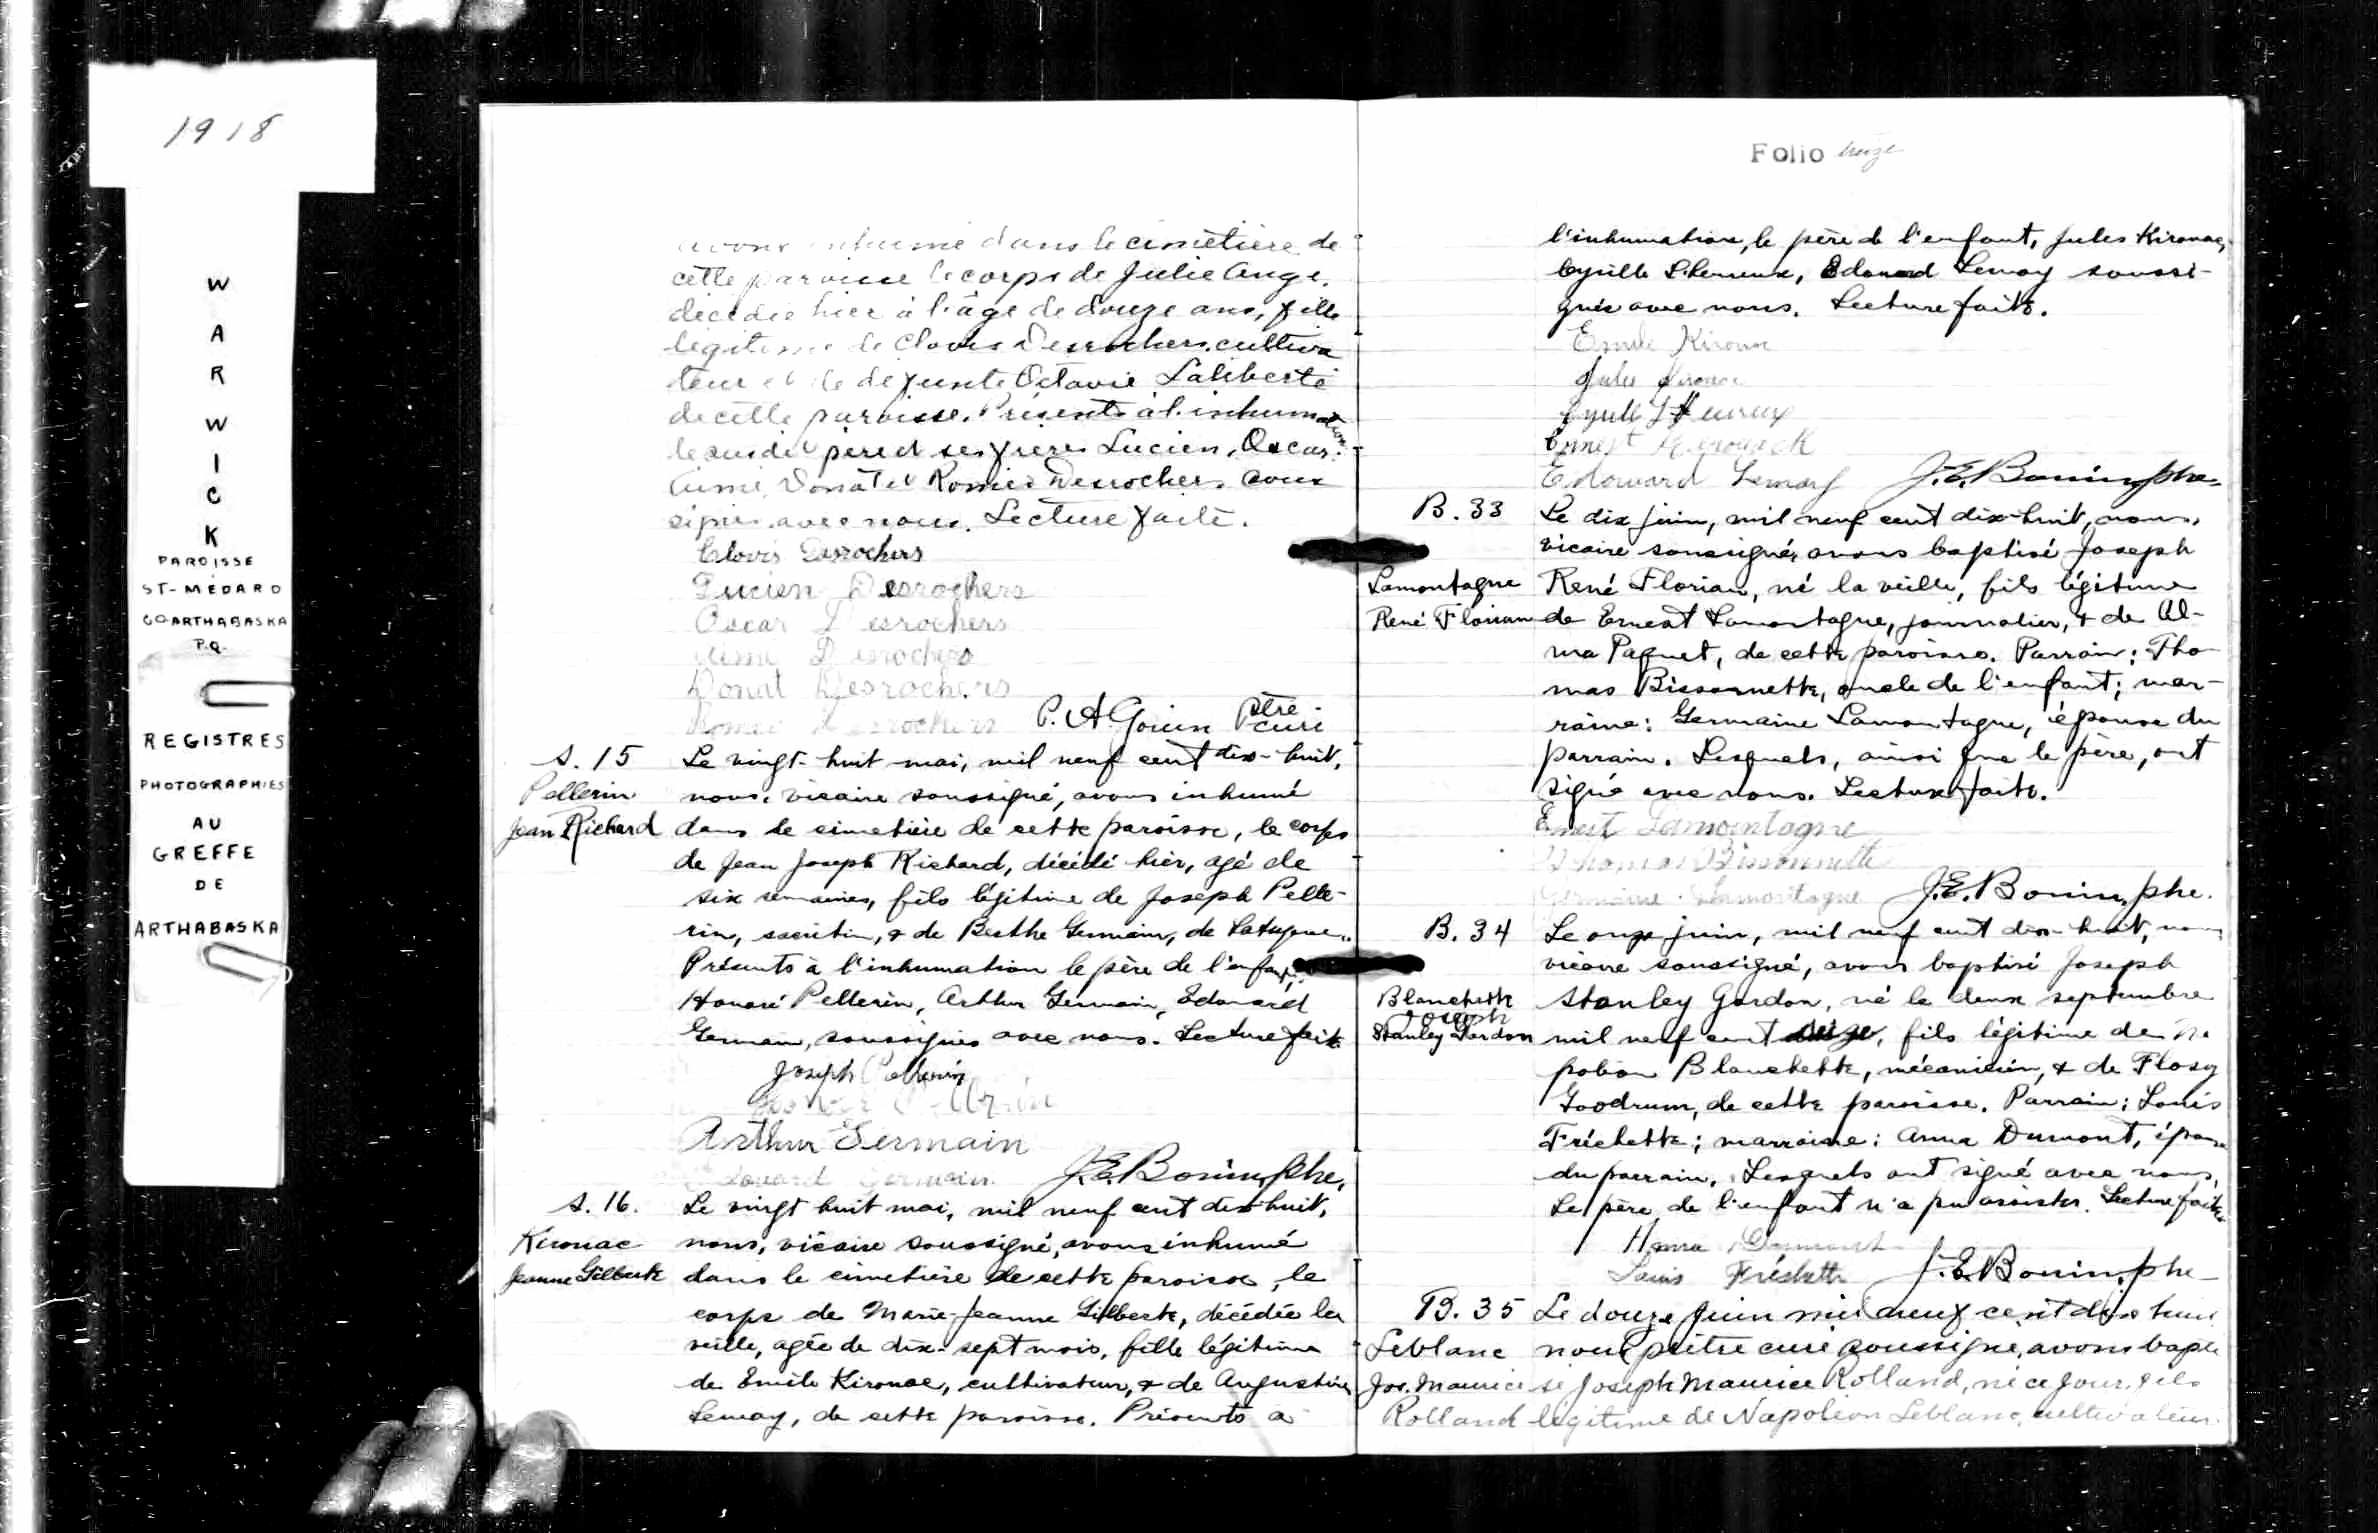 1918
W
A
R
W
I
C
K
PAROISSE
ST-MÉDARD
CO ARTHABASKA
P.Q.
REGISTRES
PHOTOGRAPHIES
AU
GREFFE
DE
ARTHABASKA
avons inhumé dans le cimetière de
cette paroisse le corps de Julie Ange,
décédée hier à l'âge de douze ans, fille
légitime de Clovis Desrochers, cultiva
teur et de défunte Octavie Laliberté
de cette paroisse. Présents à l'inhumation
le susdit père et ses frères Lucien, Oscar,
Aimé, Donat et Roméo Desrochers sous
signés avec nous. Lecture faite.
Clovis Desrochers
Lucien Desrochers
Oscar Desrochers
Aimé Desrochers
Donat Desrochers
Roméo Desrochers P. A. Gouin Ptre curé
S. 15
Pellerin
Jean Richard
Le vingt-huit mai, mil neuf cent dix-huit,
nous, vicaire soussigné, avons inhumé
dans le cimetière de cette paroisse, le corps
de Jean Joseph Richard, décédé hier, agé de
six semaines, fils légitime de Joseph Pelle-
rin, sacristin, & de Berthe Germain, de
Présents à l'inhumation le père de l'enfant,
Honoré Pellerin, Arthur Germain, Edouard
Germain, soussignés avec nous. Lecture faite
Joseph Pellerin
Honoré Pellerin
Arthur Germain
Edouard Germain J. E. Bonin, ptre,
S. 16.
Kirouac
Jeanne Gilberte
Le vingt huit mai, mil neuf cent dix-huit,
nous, vicaire soussigné, avons inhumé
dans le cimetière de cette paroisse, le
corps de Marie-Jeanne Gilberte, décédée la
veille, agée de dix-sept mois, fille légitime
de Emile Kirouac, cultivateur, & de Augustine
Lemay, de cette paroisse. Présents à
Folio treize
l'inhumation, le père de l'enfant, Jules Kirouac,
Cyrille L'heureux, Edouard Lemay soussi-
gnés avec nous. Lecture faite.
Emile Kirouac
Jules Kirouac
Cyrille L'Heureux
Ernest
Edouard Lemay J. E. Bonin, ptre.
B. 33
Lamontagne
René Florian
Le dix juin, mil neuf cent dix-huit, nous,
vicaire soussigné, avons baptisé Joseph
René Florian, né la veille, fils légitime
de Ernest Lamontagne, journalier, & de Al-
ma Paquet, de cette paroisse. Parrain: Tho-
mas Bissonnette, oncle de l'enfant; mar-
raine: Germaine Lamontagne, épouse du
parrain. Lesquels, ainsi que le père, ont
signé avec nous. Lecture faite.
Ernest Lamontagne
Thomas Bissonnette
Germaine Lamontagne J. E. Bonin, ptre.
B. 34
Blanchette
Joseph
Stanley Gordon
Le onze juin, mil neuf cent dix-huit, nous
vicaire soussigné, avons baptisé Joseph
Stanley Gordon, né le deux septembre
mil neuf cent seize, fils légitime de Na
poléon Blanchette, mécanicien, & de Flosy
Goodrum, de cette paroisse. Parrain: Louis
Fréchette; marraine: Anna Dumont, épouse
du parrain. Lesquels ont signé avec nous,
Le père de l'enfant n'a pu assister. Lecture faite
Anna Dumont
Louis Fréchette J. E. Bonin, ptre
B. 35
Leblanc
Jos. Maurice
Rolland
Le douze juin mil neuf cent dix huit
nous prêtre curé soussigné, avons bapti
sé Joseph Maurice Rolland, né ce jour, fils
légitime de Napoléon Leblanc, cultivateur